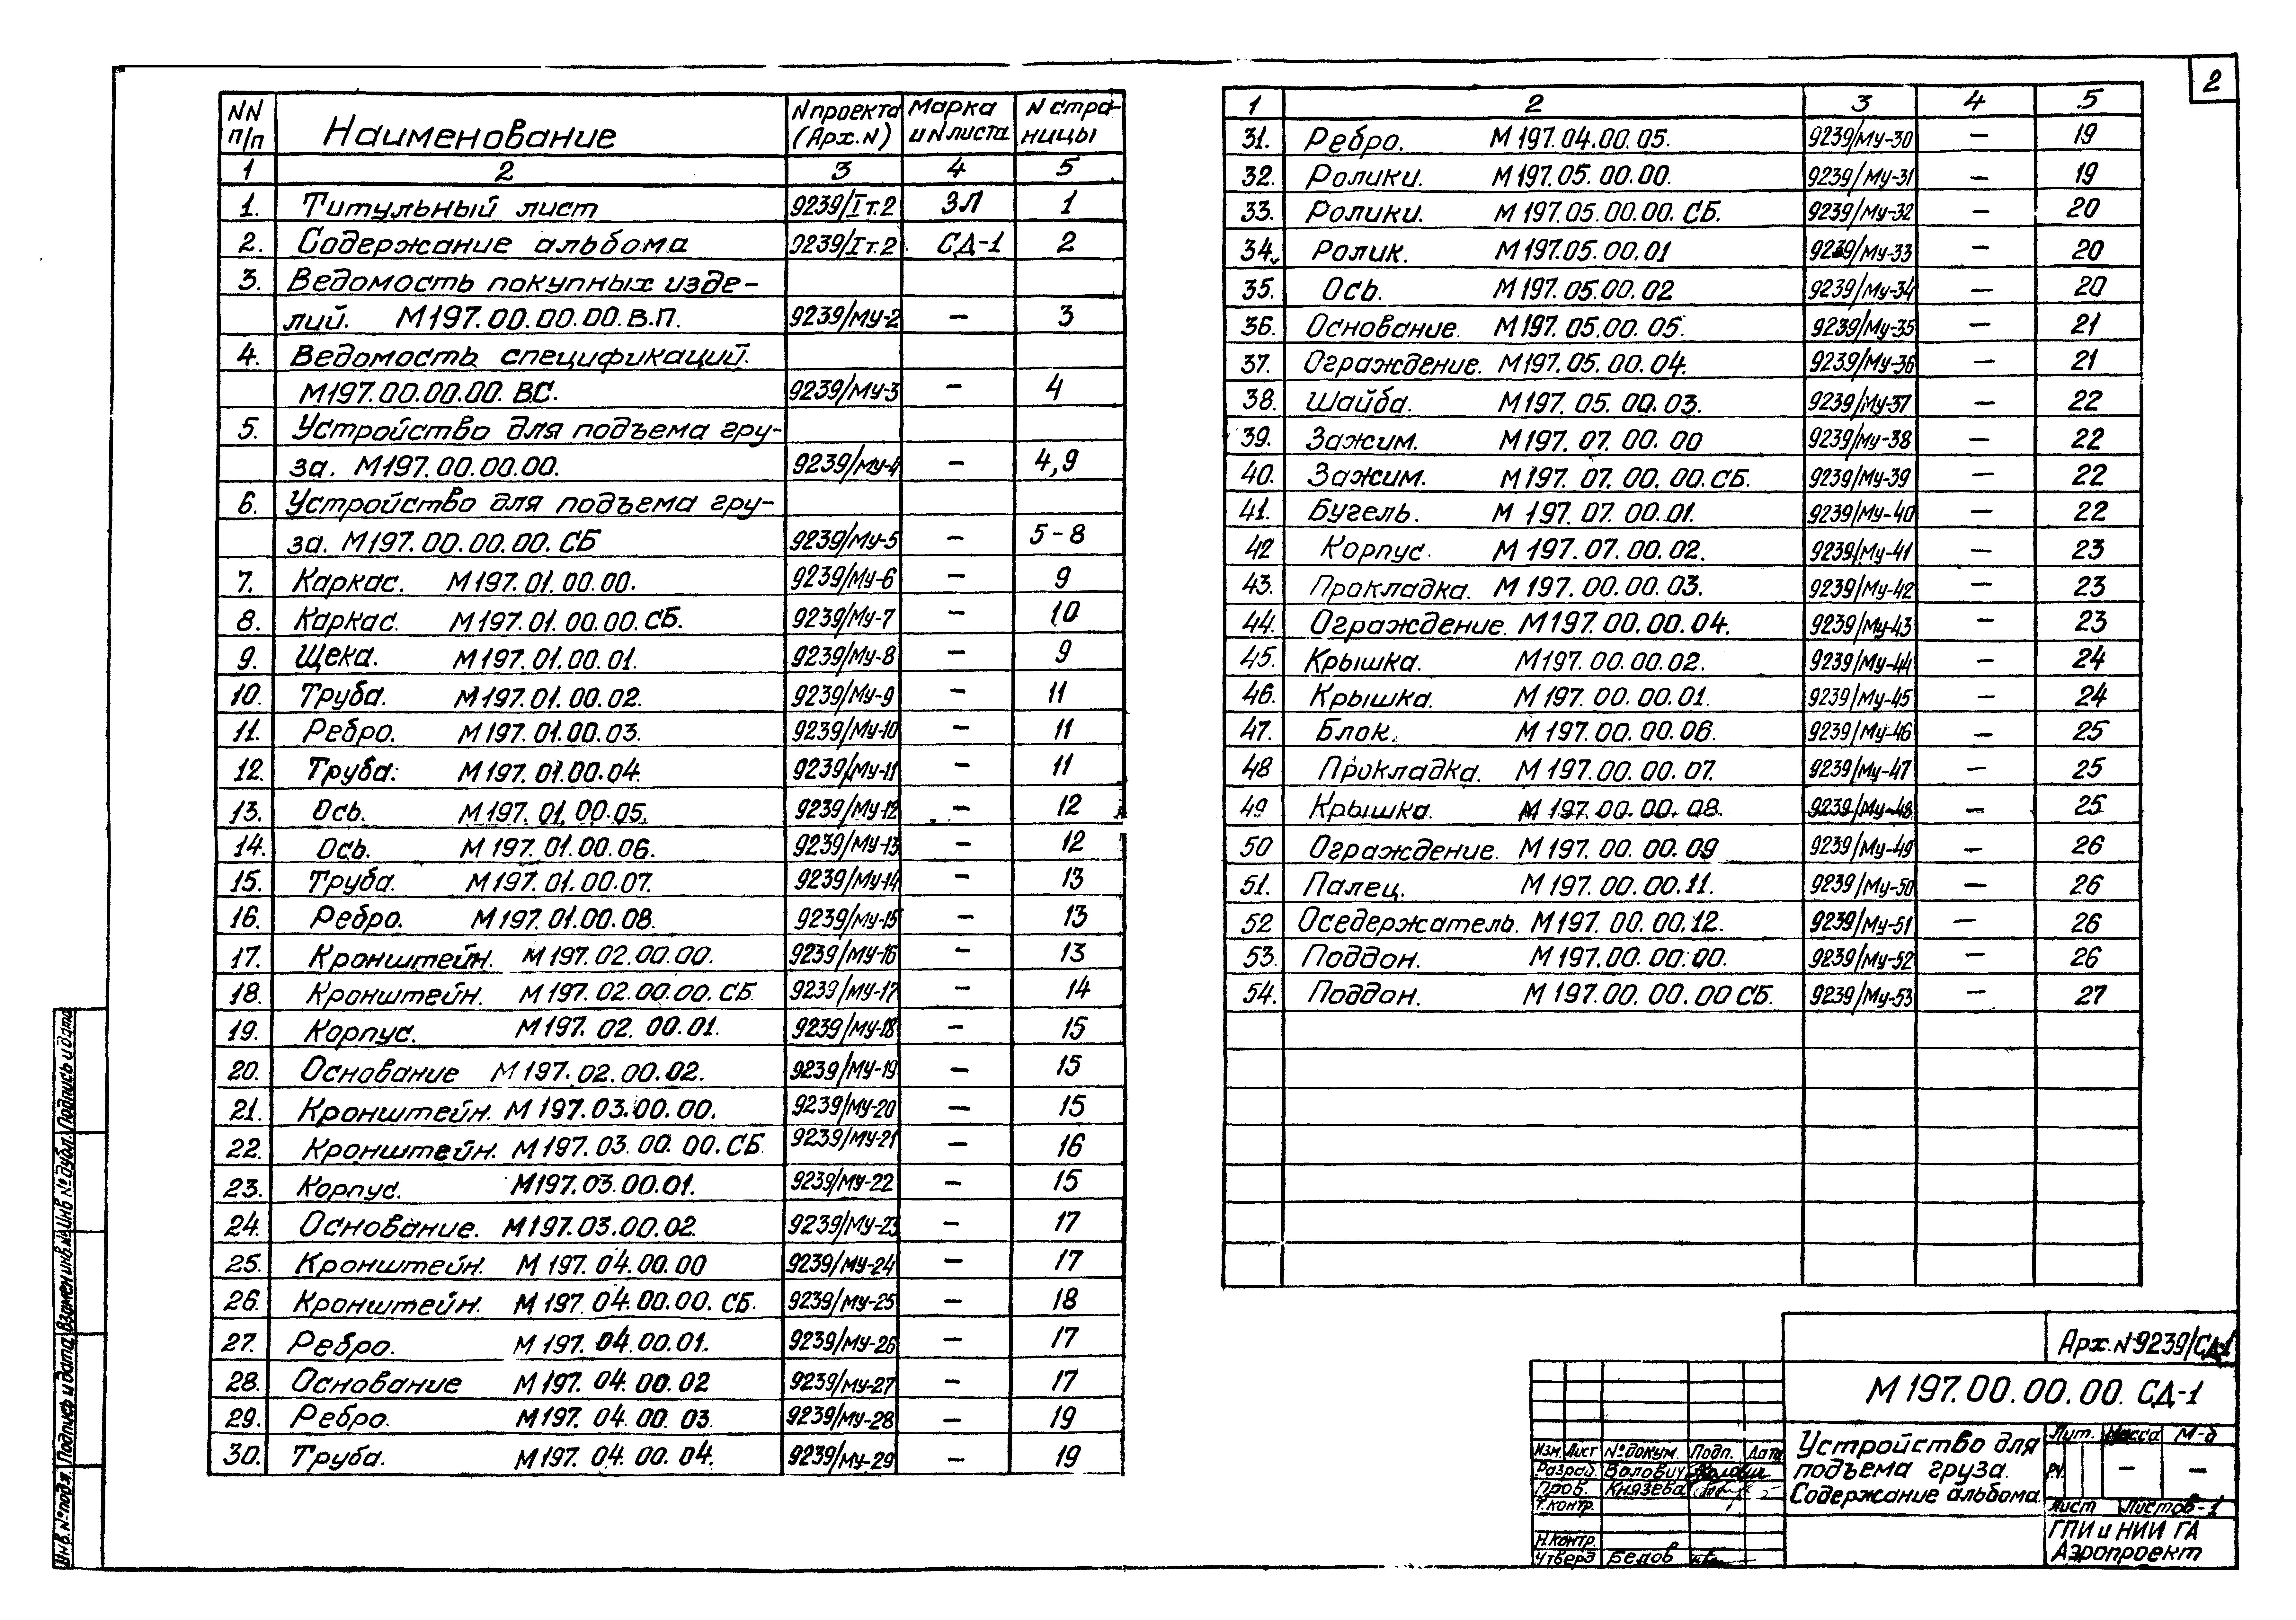 2
NN п/п Наименование N проекта (Арх.N) Марка и N листа N страницы
1 2 3 4 5
1. Титульный лист 9239/Iт.2 ЗЛ 1
2. Содержание альбома 9239/Iт.2 СД-1 2
3. Ведомость покупных изде-
лий. М197.00.00.00.В.П. 9239/Му-2 – 3
4. Ведомость спецификаций.
М197.00.00.00. ВС. 9239/Му-3 – 4
5. Устройство для подъема гру-
за. М197.00.00.00. 9239/Му-4 – 4,9
6. Устройство для подъема гру-
за. М197.00.00.00. СБ 9239/Му-5 – 5-8
7. Каркас. М197.01.00.00. 9239/Му-6 – 9
8. Каркас. М197.01.00.00.СБ. 9239/Му-7 – 10
9. Щека. М197.01.00.01. 9239/Му-8 – 9
10. Труба. М197.01.00.02. 9239/Му-9 – 11
11. Ребро. М197.01.00.03. 9239/Му-10 – 11
12. Труба. М197.01.00.04. 9239/Му-11 – 11
13. Ось. М197.01.00.05. 9239/Му-12 – 12
14. Ось. М197.01.00.06. 9239/Му-13 – 12
15. Труба. М197.01.00.07. 9239/Му-14 – 13
16. Ребро. М197.01.00.08. 9239/Му-15 – 13
17. Кронштейн. М197.02.00.00. 9239/Му-16 – 13
18. Кронштейн. М197.02.00.00.СБ 9239/Му-17 – 14
19. Корпус. М197.02.00.01. 9239/Му-18 – 15
20. Основание М197.02.00.02. 9239/Му-19 – 15
21. Кронштейн. М197.03.00.00. 9239/Му-20 – 15
22. Кронштейн. М197.03.00.00.СБ 9239/Му-21 – 16
23. Корпус. М197.03.00.01. 9239/Му-22 – 15
24. Основание. М197.03.00.02. 9239/Му-23 – 17
25. Кронштейн. М197.04.00.00 9239/Му-24 – 17
26. Кронштейн. М197.04.00.00.СБ. 9239/Му-25 – 18
27. Ребро. М197.04.00.01. 9239/Му-26 – 17
28. Основание М197.04.00.02 9239/Му-27 – 17
29. Ребро. М197.04.00.03. 9239/Му-28 – 19
30. Труба. М197.04.00.04. 9239/Му-29 – 19
1 2 3 4 5
31. Ребро. М197.04.00.05. 9239/Му-30 – 19
32. Ролики. М197.05.00.00. 9239/Му-31 – 19
33. Ролики. М197.05.00.00.СБ. 9239/Му-32 – 20
34. Ролик. М197.05.00.01 9239/Му-33 – 20
35. Ось. М197.05.00.02 9239/Му-34 – 20
36. Основание. М197.05.00.05. 9239/Му-35 – 21
37. Ограждение. М197.05.00.04. 9239/Му-36 – 21
38. Шайба. М197.05.00.03. 9239/Му-37 – 22
39. Зажим. М197.07.00.00 9239/Му-38 – 22
40. Зажим. М197.07.00.00.СБ. 9239/Му-39 – 22
41. Бугель. М197.07.00.01. 9239/Му-40 – 22
42 Корпус. М197.07.00.02. 9239/Му-41 – 23
43. Прокладка. М197.00.00.03. 9239/Му-42 – 23
44. Ограждение. М197.00.00.04. 9239/Му-43 – 23
45. Крышка. М197.00.00.02. 9239/Му-44 – 24
46. Крышка. М197.00.00.01. 9239/Му-45 – 24
47. Блок. М197.00.00.06. 9239/Му-46 – 25
48 Прокладка. М197.00.00.07. 9239/Му-47 – 25
49 Крышка. М197.00.00.08. 9239/Му-48 – 25
50 Ограждение. М197.00.00.09 9239/Му-49 – 26
51. Палец. М197.00.00.11. 9239/Му-50 – 26
52 Оседержатель. М197.00.00.12. 9239/Му-51 – 26
53. Поддон. М197.00.00.00. 9239/Му-52 – 26
54. Поддон. М197.00.00.00 СБ. 9239/Му-53 – 27
Арх.N 9239/СД-1
М197.00.00.00. СД-1
Изм. Лист № докум. Подп. Дата
Разраб. Волович
Пров. Князева
Т.контр.
Н.контр.
Утверд Белов
Устройство для
подъема груза.
Содержание альбома.
Лит. Масса М-б
Р.Ч. – –
Лист Листов-1
ГПИ и НИИ ГА
Аэропроект
Инв.№подл. Подпись и дата Взамен инв.№ Инв №дубл. Подпись и дата